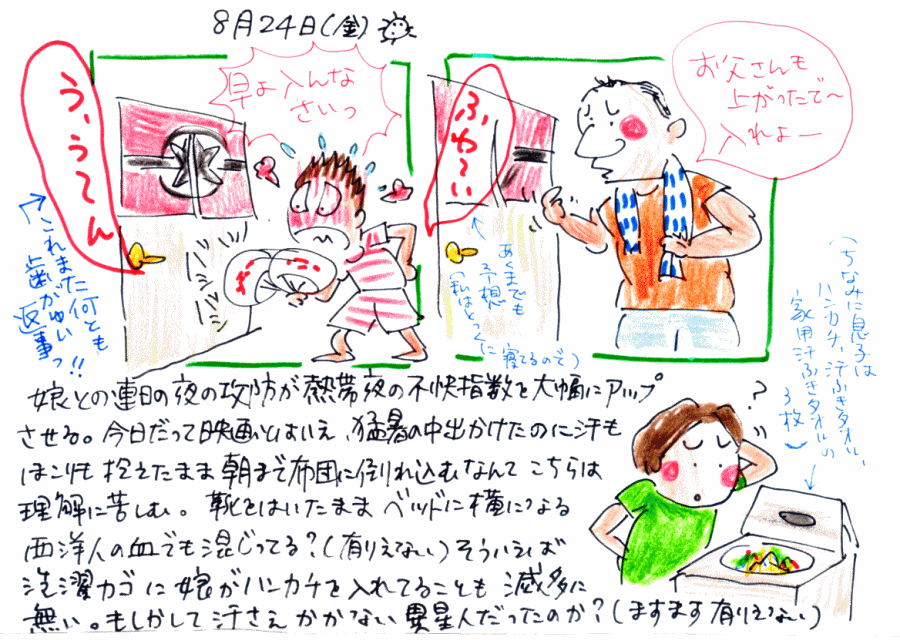 8月24日(金)
う、うてん
早よ入んな
さいっ
これまた何とも
歯がゆい
返事っ!!
ふわ〜い
お父さんも
上がったで〜
入れよー
あくまでも
予想
(私はとっくに寝てるので)
(ちなみに息子は
ハンカチ、汗ふきタオル、
家用汗ふきタオルの
3枚)
?
娘との連日の夜の攻防が熱帯夜の不快指数を大幅にアップ
させる。今日だって映画とはいえ、猛暑の中出かけたのに汗も
ほこりも抱えたまま朝まで布団に倒れ込むなんてこちらは
理解に苦しむ。靴をはいたままベッドに横になる
西洋人の血でも混じってる?(有りえない)そういえば
洗濯カゴに娘がハンカチを入れてることも滅多に
無い。もしかして汗さえかかない異星人だったのか?(ますます有りえない)